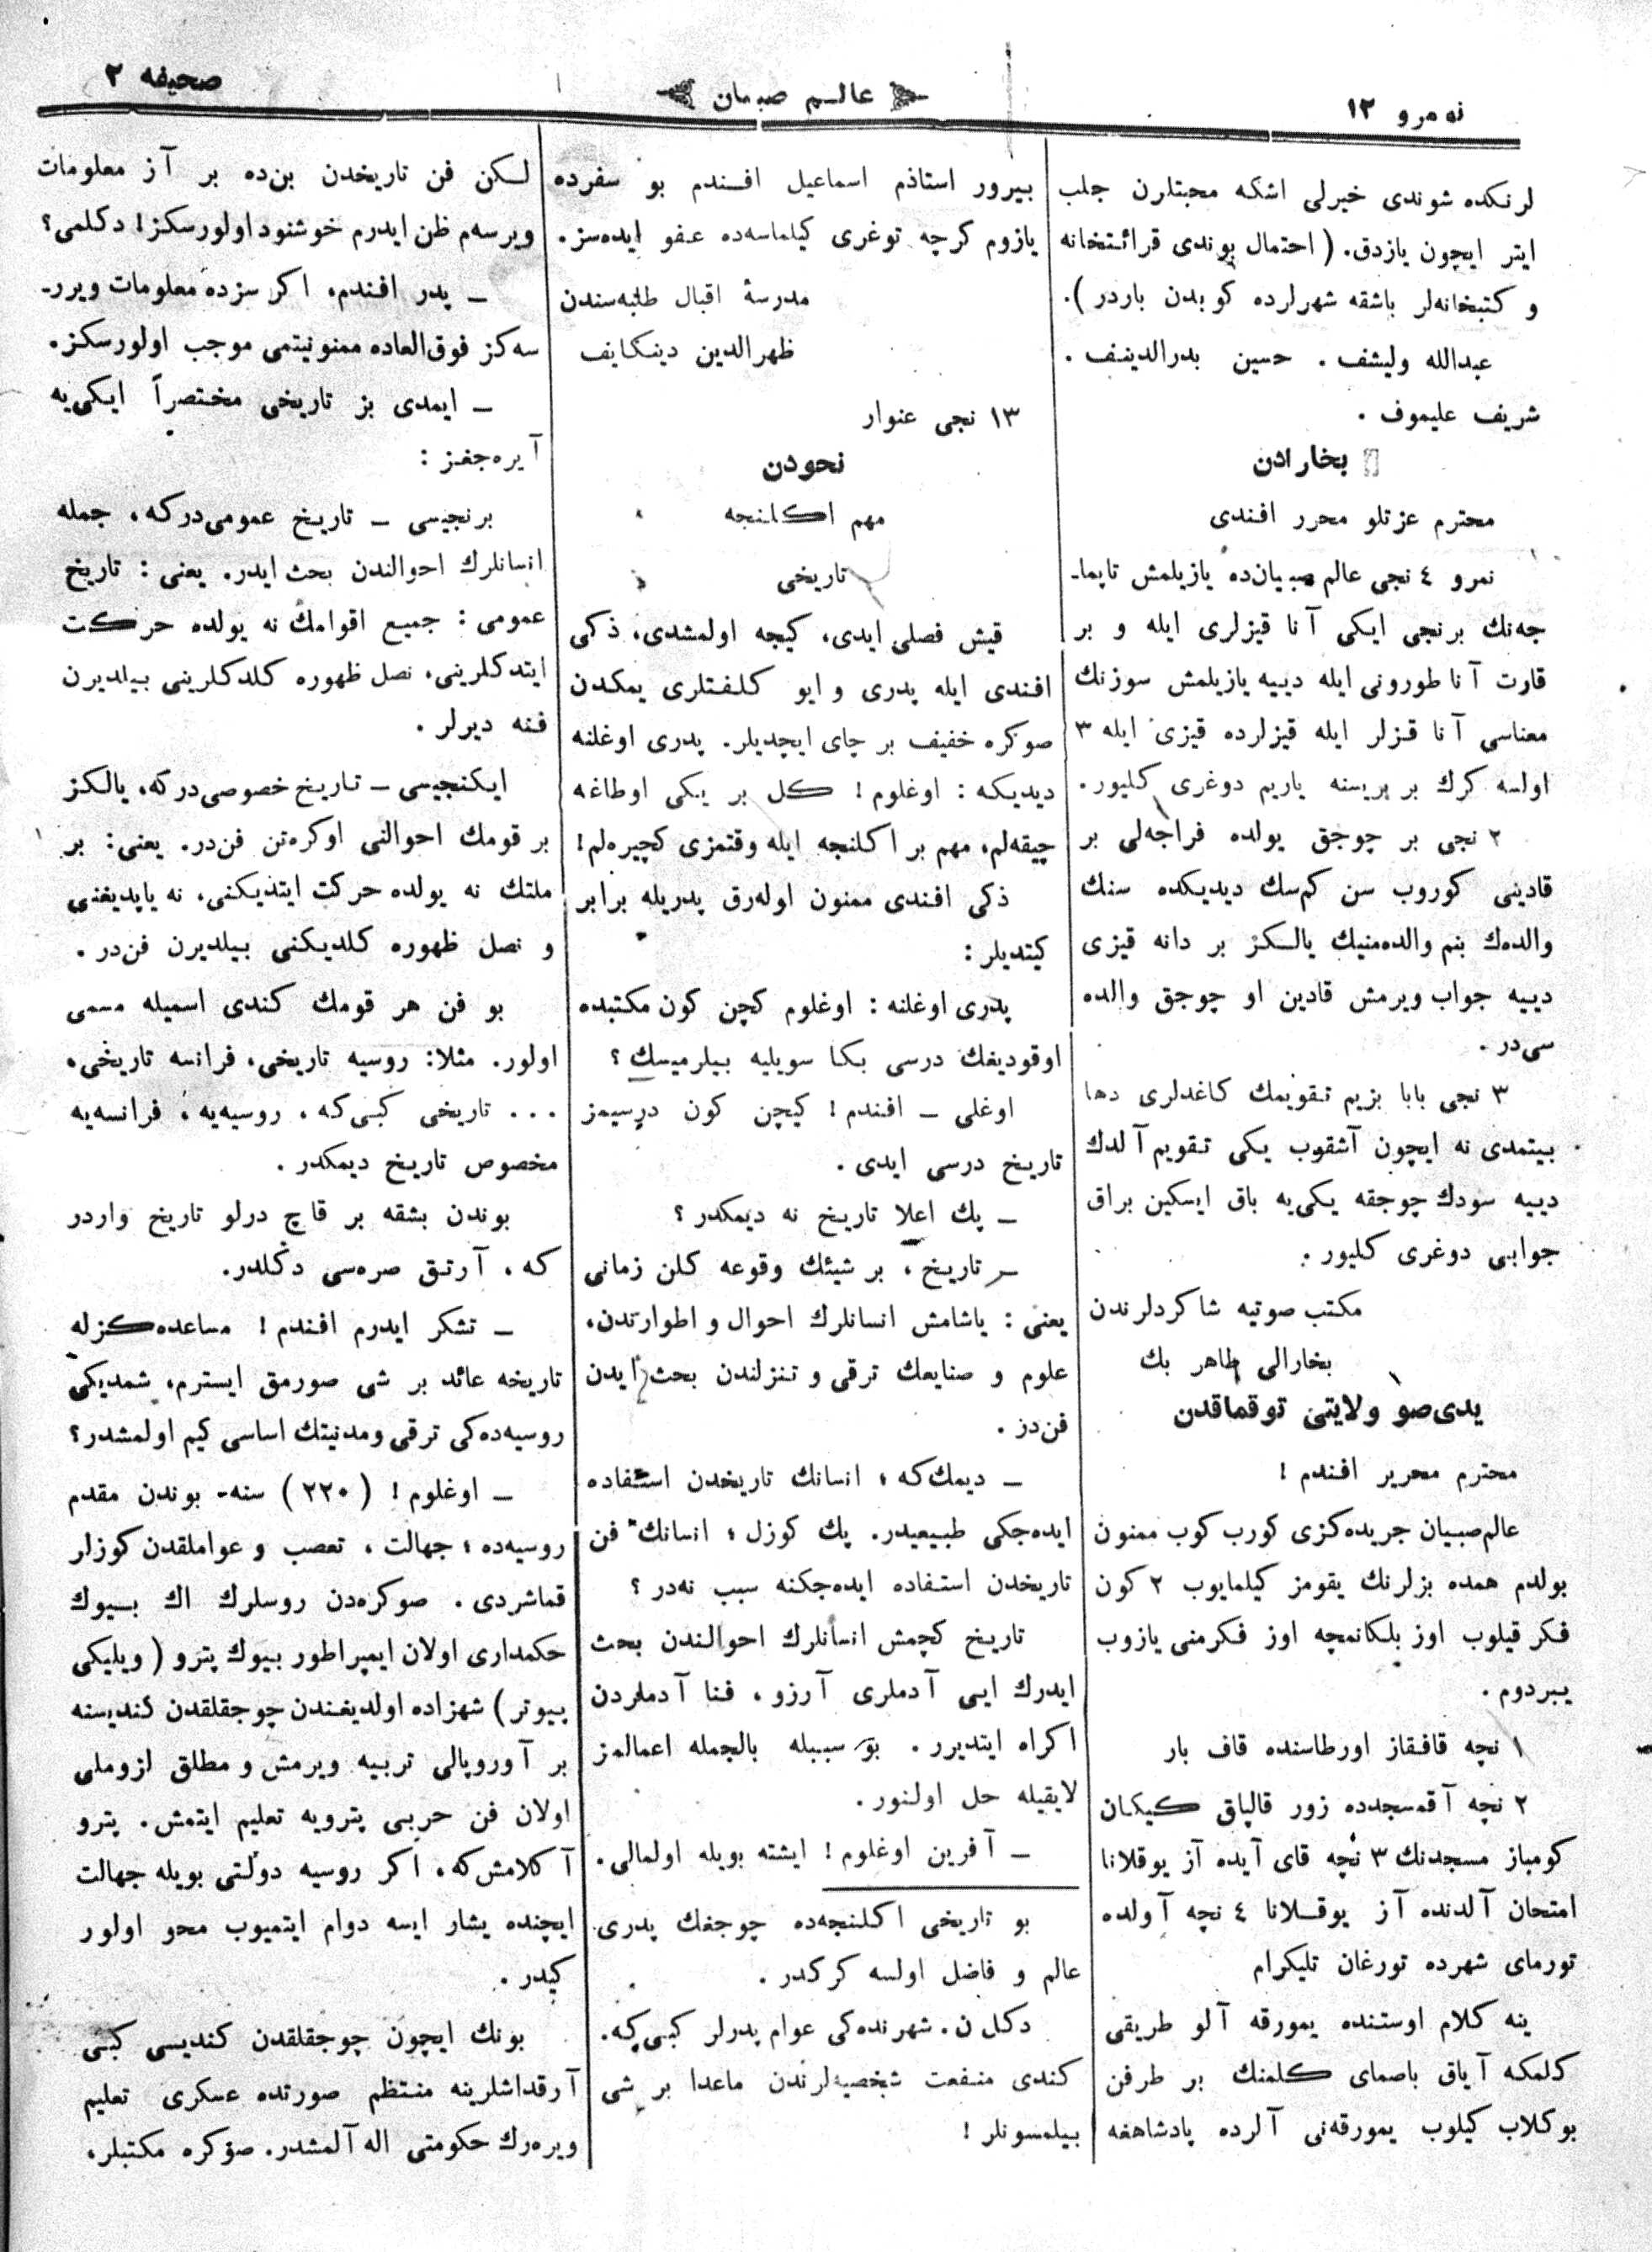 نومرو ١٢
عالم صبيان
صحيفه ٢
لرنكده شوندى خيرلى اشكه محبتلرن جلب
ايتر ايچون يازدق. ( احتمال بوندى قرائتخانه
و كتبخانه‌لر باشقه شهرلرده كوبدن باردر ).
عبدالله وليشف . حسين بدرالدينف .
شريف عليموف .
بخارادن
محترم عزتلو محرر افندى
نمرو ٤ نجى عالم صبيان‌ده يازيلمش تاپما-
جه‌نك برنجى ايكى آنا قيزلرى ايله و بر
قارت آنا طورونى ايله دييه يازيلمش سوزنك
معناسى آنا قزلر ايله قيزلرده قيزى ايله ٣
اولسه كرك بر بريسنه ياريم دوغرى كليور.
٢ نجى بر چوجق يولده فراجه‌لى بر
قادينى كوروب سن كم‌سك ديديكده سنك
والده‌ك بنم والده‌منيك يالكز بر دانه قيزى
دييه جواب ويرمش قادين او چوجق والده
سى‌در .
٣ نجى بابا بزيم تقويمك كاغدلرى دها
بيتمدى نه ايچون آشقوب يكى تقويم آلدك
دييه سودك چوجقه يكى‌يه باق ايسكين براق
جوابى دوغرى كليور .
مكتب صوتيه شاكردلرندن
بخارالى طاهر بك
يدى‌صو ولايتى توقماقدن
محترم محرير افندم !
عالم‌صبيان جريده‌كزى كورب كوب ممنون
بولدم همده بزلرنك يقومز كيلمايوب ٢ كون
فكر قيلوب اوز بلكانمچه اوز فكرمنى يازوب
يبردوم .
١ نچه قافقاز اورطاسنده قاف بار
٢ نچه آقمسجدده زور قالپاق كيكان
كومباز مسجدنك ٣ نچه قاى آيده آز يوقلانا
امتحان آلدنده آز يوقلانا ٤ نچه آولده
تورماى شهرده تورغان تليكرام
ينه كلام اوستنده يمورقه آلو طريقى
كلمكه آياق باصماى كلمنك بر طرفن
بوكلاب كيلوب يمورقه‌نى آلرده پادشاهغه
بيرور استاذم اسماعيل افندم بو سفرده
يازوم كرچه توغرى كيلماسه‌ده عفو ايده‌سز.
مدرسهٔ اقبال طلبه‌سندن
ظهرالدين دينكايف
١٣ نجى عنوار
نحودن
مهم اكلنجه
تاريخى
قيش فصلى ايدى، كيجه اولمشدى، ذكى
افندى ايله پدرى و ايو كلفتلرى يمكدن
صوكره خفيف بر چاى ايچديلر. پدرى اوغلنه
ديديكه : اوغلوم ! كل بر يكى اوطاغه
چيقه‌لم، مهم بر اكلنجه ايله وقتمزى كچيره‌لم!
ذكى افندى ممنون اوله‌رق پدريله برابر
كيتديلر :
پدرى اوغلنه : اوغلوم كچن كون مكتبده
اوقوديغك درسى بكا سويليه بيلرميسك ؟
اوغلى ــ افندم ! كيچن كون درسيمز
تاريخ درسى ايدى .
ــ پك اعلا تاريخ نه ديمكدر ؟
ــ تاريخ ، بر شيئك وقوعه كلن زمانى
يعنى : ياشامش انسانلرك احوال و اطوارندن،
علوم و صنايعك ترقى و تنزلندن بحث ايدن
فن‌در .
ــ ديمك‌كه ؛ انسانك تاريخدن استفاده
ايده‌جكى طبيعيدر. پك كوزل ؛ انسانك فن
تاريخدن استفاده ايده‌جكنه سبب نه‌در ؟
تاريخ كچمش انسانلرك احوالندن بحث
ايدرك ايى آدملرى آرزو ، فنا آدملردن
اكراه ايتديرر . بو سببله بالجمله اعمالمز
لايقيله حل اولنور .
ــ آفرين اوغلوم ! ايشته بويله اولمالى.
بو تاريخى اكلنجه‌ده چوجغك پدرى
عالم و فاضل اولسه كركدر .
دكل ن. شهرنده‌كى عوام پدرلر كبى‌كه.
كندى منفعت شخصيه‌لرندن ماعدا بر شى
بيلمسونلر !
لكن فن تاريخدن بن‌ده بر آز معلومات
ويرسه‌م ظن ايدرم خوشنود اولورسكز! دكلمى؟
ــ پدر افندم، اكر سزده معلومات ويرر-
سه‌كز فوق‌العاده ممنونيتمى موجب اولورسكز.
ــ ايمدى بز تاريخى مختصراً ايكى‌يه
آيره‌جغز :
برنجيسى ــ تاريخ عمومى‌دركه، جمله
انسانلرك احوالندن بحث ايدر. يعنى : تاريخ
عمومى : جميع اقوامك نه يولده حركت
ايتدكلرينى، نصل ظهوره كلدكلرينى بيلديرن
فنه ديرلر .
ايكنجيسى ــ تاريخ خصوصى‌دركه، يالكز
بر قومك احوالنى اوكره‌تن فن‌در. يعنى: بر
ملتك نه يولده حركت ايتديكنى، نه ياپديغنى
و نصل ظهوره كلديكنى بيلديرن فن‌در .
بو فن هر قومك كندى اسميله مسمى
اولور. مثلا: روسيه تاريخى، فرانسه تاريخى،
... تاريخى كبى‌كه ، روسيه‌يه ، فرانسه‌يه
مخصوص تاريخ ديمكدر .
بوندن بشقه بر قاچ درلو تاريخ واردر
كه ، آرتق صره‌سى دكلدر.
ــ تشكر ايدرم افندم ! مساعده‌كزله
تاريخه عائد بر شى صورمق ايسترم، شمديكى
روسيه‌ده‌كى ترقى ومدنيتك اساسى كيم اولمشدر؟
ــ اوغلوم ! ( ٢٢٠ ) سنه- بوندن مقدم
روسيه‌ده ؛ جهالت ، تعصب و عواملقدن كوزلر
قماشردى . صوكره‌دن روسلرك اك بيوك
حكمدارى اولان ايمپراطور بيوك پترو ( ويليكى
پيوتر ) شهزاده اولديغندن چوجقلقدن كنديسنه
بر آوروپالى تربيه ويرمش و مطلق لزوملى
اولان فن حربى پترويه تعليم ايتمش. پترو
آكلامش‌كه، اكر روسيه دولتى بويله جهالت
ايچنده يشار ايسه دوام ايتميوب محو اولور
كيدر .
بونك ايچون چوجقلقدن كنديسى كبى
آرقداشلرينه منتظم صورتده عسكرى تعليم
ويره‌رك حكومتى اله آلمشدر. صوكره مكتبلر،